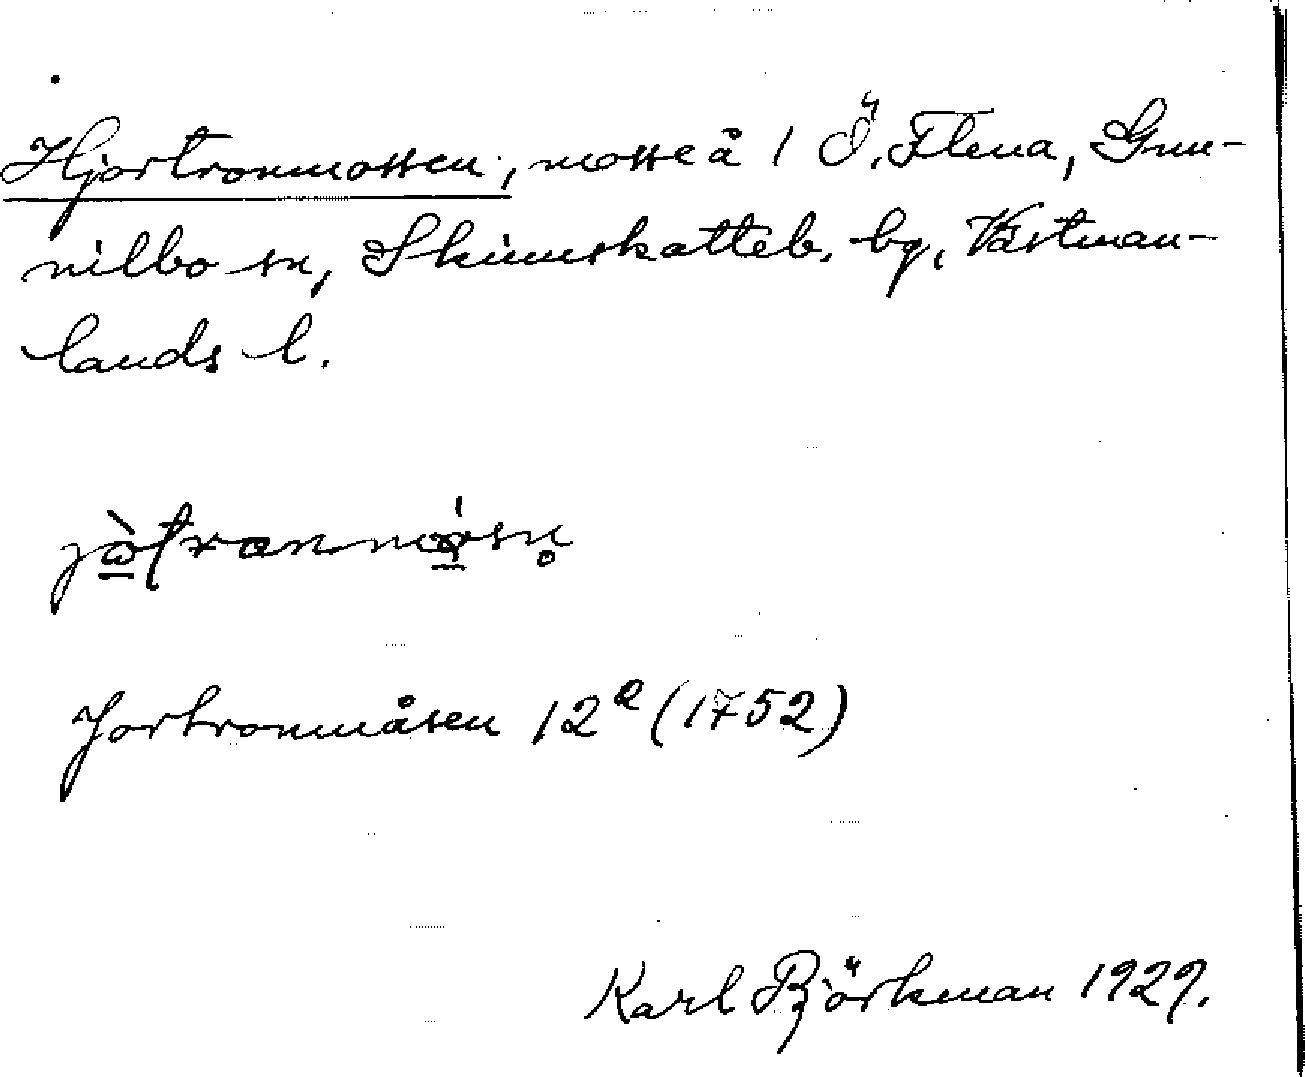 Hjortronmossen, mosse å 1 Ö. Flena, Gun-
nilbo sn, Skinnskatteb. bg, Västman-
lands l.
Jortronmåsen 12ᵃ (1752)
Karl Björkman 1929.